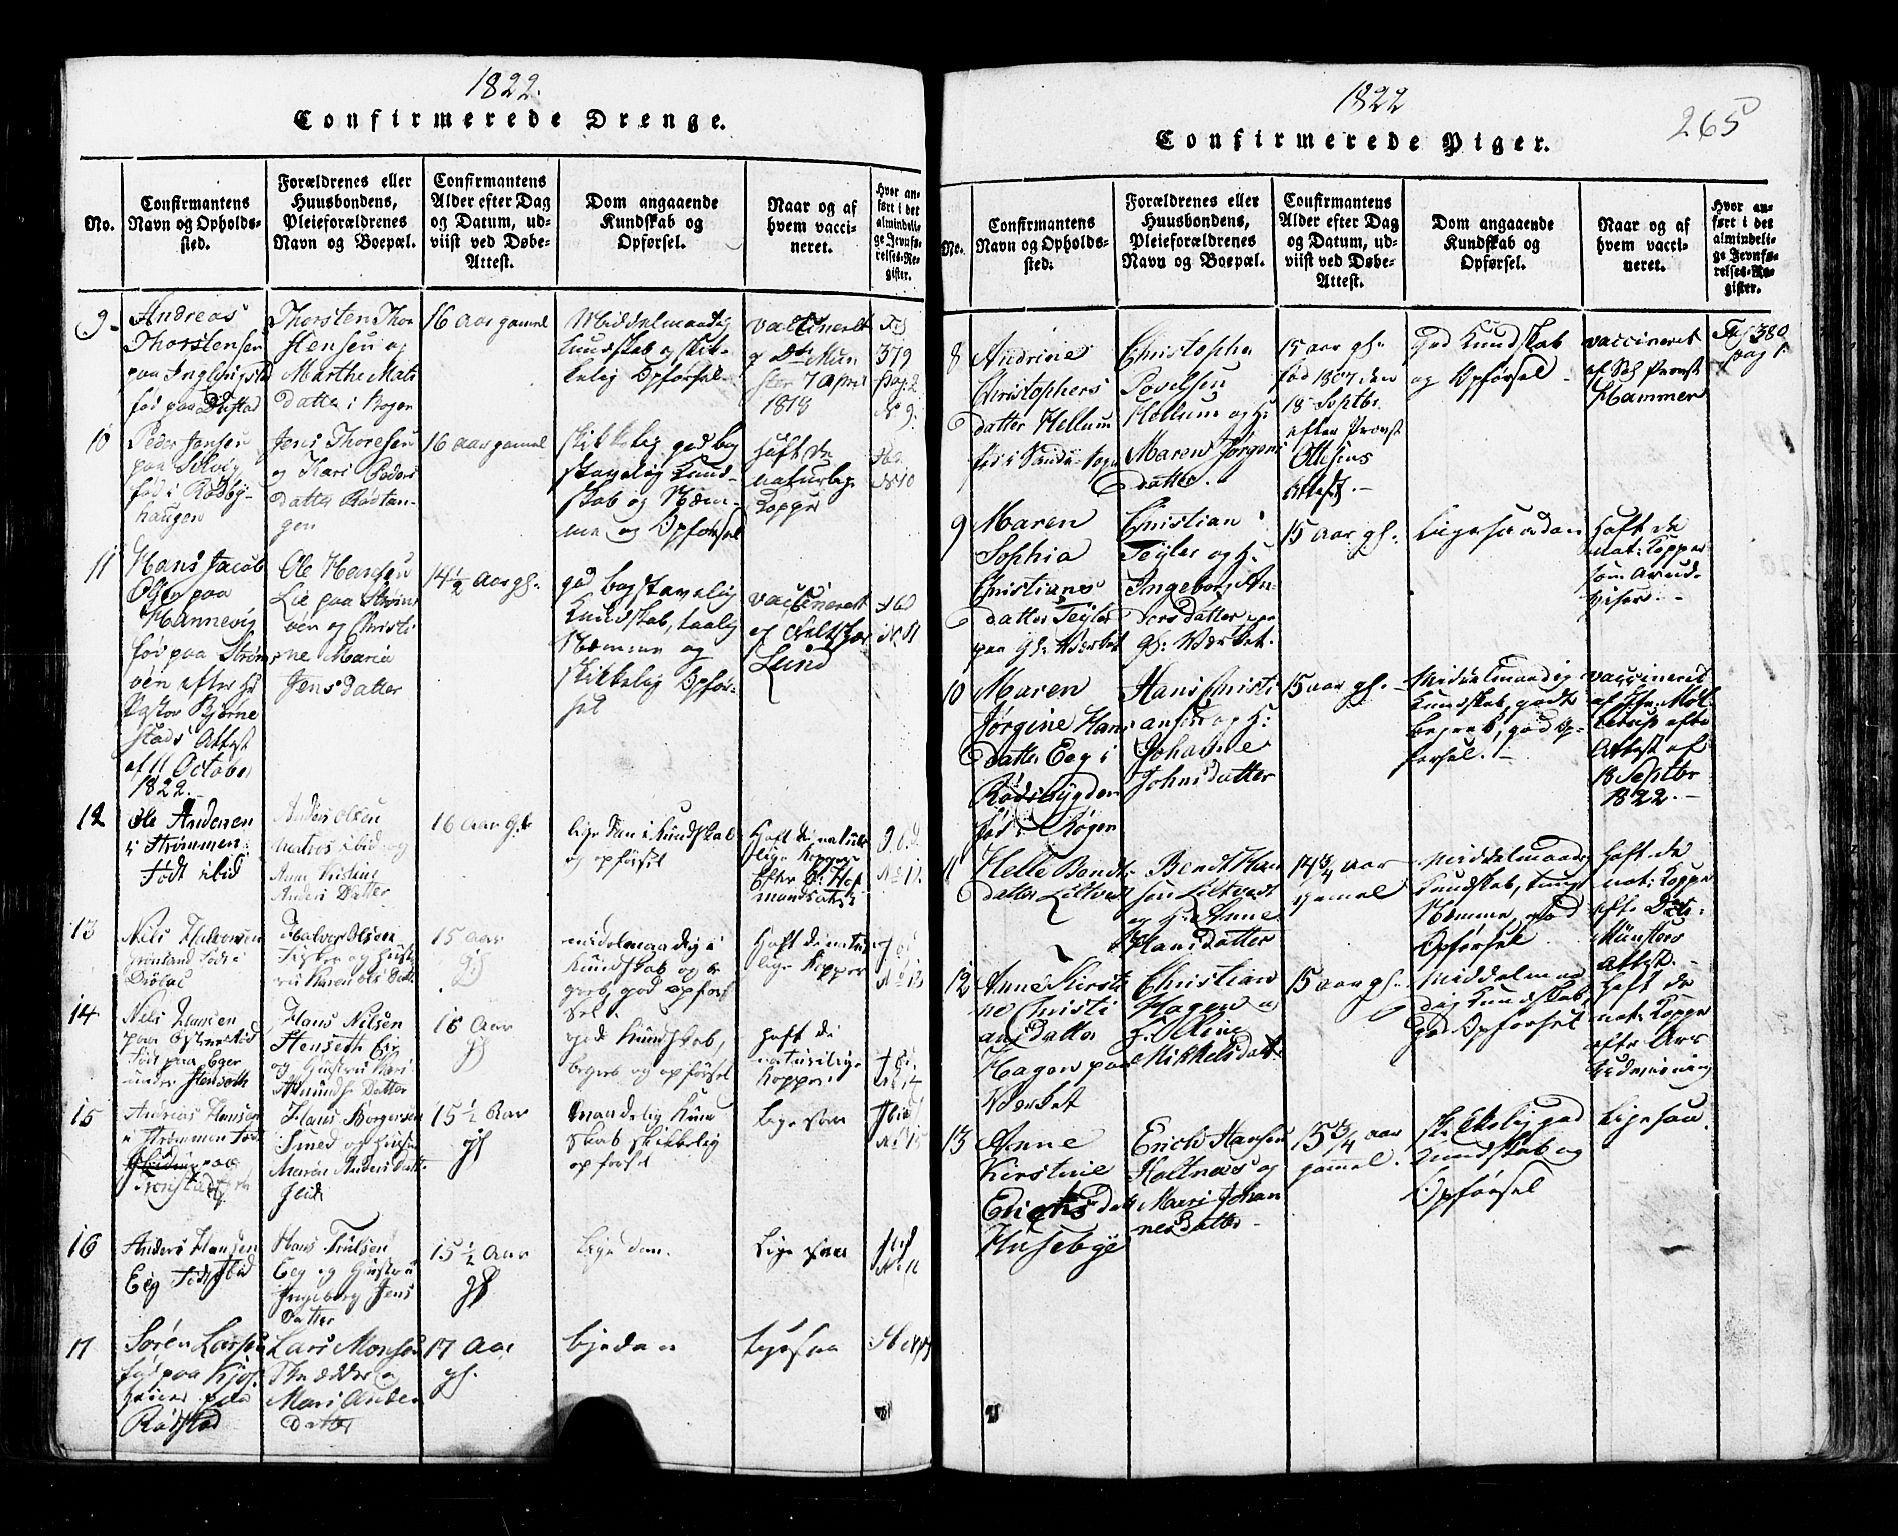 1822.
Confirmerede Drenge.
No.
Confirmantens
Navn og Opholds-
sted.
Forældrenes eller
Huusbondens,
Pleieforældrenes
Navn og Boepæl.
Confirmantens
Alder efter Dag
og Datum, ud-
viist ved Døbe-
Attest.
Dom angaaende
Kundskab og
Opførsel.
Naar og af
hvem vacci-
neret.
Hvor an-
ført i det
almindeli-
ge Jevnfø-
relses-Re-
gister.
9.
Andreas
Thorstensen
paa
fød paa
Thorsten Thor
Hensen og
Marthe Mats
datter i Røgen
16 aar gamel
Middelmaadig
kundskab og skik-
kelig Opførsel
vaccineret
7 April
1818
379
pag. 2
No 9.
10
Peder Jensen
paa
fød i Rødby-
haugen
Jens Thoresen
og Kari Peders
datter Rødtan-
gen
16 aar gamel
skikkelig god bog
stavelig Kund-
skab og Nem-
me og Opførsel
haft de
naturlige
Kopper
No 10
11
Hans Jacob
Olsen paa
Hannevig
fød paa Strøm-
men efter Hr
Pastor Bjørne
stads Attest
af 11 October
1822.
Ole Hansen
Lie paa Strøm
men og Christi
ne Maria
Jensdatter
14 1/2 Aar gl.
god bogstavelig
Kundskab, taalig
Nemme og
skikkelig Opfør-
sel
vaccineret
af Feltskær
Lund
No 11
12
Ole Andersen
i Strømmen
født ibid
Anders Olsen
Matros ibid og
Anne Kirstine
Anders Datter
16 Aar gl
lige dan i kundskab
og opførsel
Haft de natur
lige Kopper
Efter
No 12
13
Niels Halvorsen
Grønland født i
Halvor Olsen
Fisker og Hust
ru Karen Ols Datt
15 aar
gl
midelmaadig i
Kundskab og be
greb, god opfør
sel.
Haft de natur
lige Kopper
No 13
14
Niels Hansen
paa
født paa Eger
under Henseth
Hans Nilsen
Henseth Eg
og Hustru Kari
Amunds Datter
16 Aar
gl
god Kundskab,
begreb og opførsel
haft de
naturlige
Kopper
No 14
15
Andreas Hansen
i Strømmen fød
Hans Borgersen
Smed og Hustru
Maren Anders Datt
ibid
15 1/2 Aar
gl
maadelig Kun
skab skikkelig
opførsel
Lige saa
No 15
16
Anders Hansen
Eeg født ibid
Hans Trulsen
Eeg og Hustru
Ingeborg Jens
Datter
15 1/2 Aar
gl
lige dan.
Lige saa
17
Søren Larsen
fød paa
paa
Rødstad
Lars Monsen
Skrædder og
Mari Anders
Datter
17 Aar
gl.
ligedan
ligesaa
1822
265
Confirmerede Piger.
No.
Confirmantens
Navn og Opholds-
sted.
Forældrenes eller
Huusbondens,
Pleieforældrenes
Navn og Boepæl.
Confirmantens
Alder efter Dag
og Datum, ud-
viist ved Døbe-
Attest.
Dom angaaende
Kundskab og
Opførsel.
Naar og af
hvem vacci-
neret.
Hvor an-
ført i det
almindeli-
ge Jevnfø-
relses-Re-
gister.
8
Andrine
Christophers
datter Hellum
fød i Sande Sogn
Christopher
Povelsen
Hellum og H:
Maren Jørgens
datter.
15 aar gl.
fød 1807, den
18 Septbr.
efter Provst
Ottesens
Attest.
God Kundskab
og Opførsel
vaccineret
af Sl Provst
Hammer
380
pag 1.
9
Maren
Sophia
Christians
datter Teyler
paa Gl: Værket
Christian
Teyler og H:
Ingeborg An-
dersdatter paa
gl: Værket.
15 aar gl.
Ligesaadan
Haft de
nat: Kopper
som Ar ud-
viser.
10
Maren
Jørgine Hans
datter Eeg i
Rødsbygden
fød i Røgen
Hans Christi
ansen og H:
Johanne
Johnsdatter
15 aar gl.
Middelmaadig
kundskab, godt
begreb, god Op-
førsel.
vaccineret
Attest af
18 Septbr
1822.
11
Helle Bendts
datter Liltved
Bendt Han
sen Liltvedt
og H: Anne
Hansdatter
14 3/4 aar
gamel
Middelmaadig
kundskab, tung
Nemme, god
Opførsel
haft de
nat: Kopper
efter Dr:
Münsters
Attest.
12
Anne Kirsti
ne Christi
ansdatter
Hagen paa
Værket
Christian
Hagen og
H. Rine
Mikkelsdatt
15 aar gl.
Middelmaa
dig Kundskab,
god Opførsel
Haft de
nat: Kopper
efter Ars
Udvisning
13
Anne
Kirstine
Erichsdatt
Husebye
Erich Hansen
Holtnæs og
Mari Johan
nesdatter
15 3/4 aar
gamel.
skikkelig god
kundskab og
Opførsel
Ligesaa.